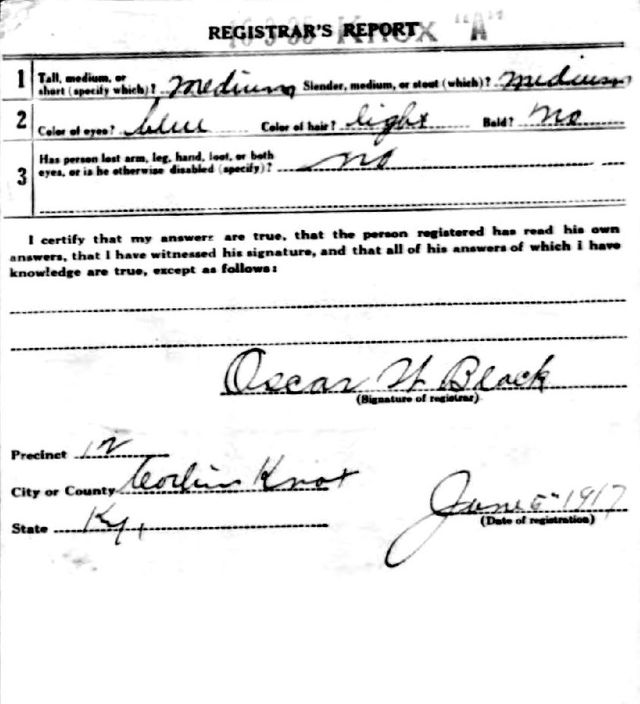 REGISTRAR'S REPORT
Knox "A"
1 Tall, medium, or short (specify which)? medium Slender, medium, or stout (which)? medium
2 Color of eyes? blue Color of hair? light Bald? No
3 Has person lost arm, leg, hand, foot, or both eyes, or is he otherwise disabled (specify)? no
I certify that my answers are true, that the person registered has read his own
answers, that I have witnessed his signature, and that all of his answers of which I have
knowledge are true, except as follows:
Oscar W Black
(Signature of registrar)
Precinct 12
City or County Corbin Knox
State Ky,
June 5 - 1917
(Date of registration)